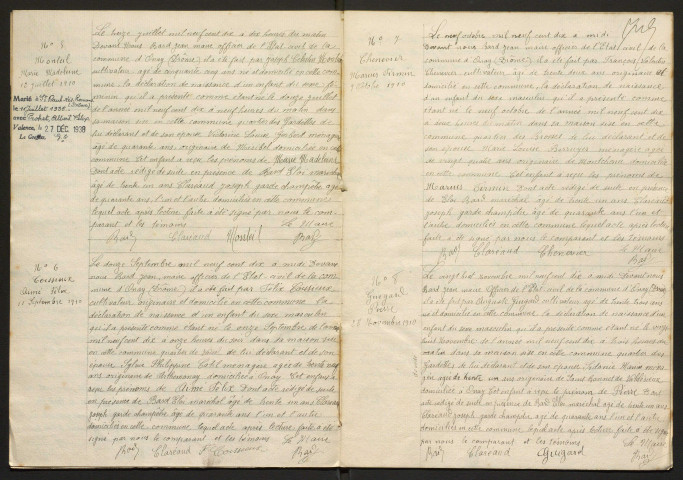 N° 5
Montel
Marie Madeleine
12 juillet 1910
Marié à St Paul
le juillet 1938
avec
Valence, le 27 DEC 1938
Le Greffier
Le douze juillet mil neuf cent dix à dix heures du matin
Devant nous Bard Jean, maire officier de l'Etat civil de la
commune d'Ouray (Drôme) il a été fait par Joseph
cultivateur, âgé de cinquante cinq ans et domicilié en cette com-
mune, la déclaration de naissance d'un enfant du sexe fé-
minin qu'il a présenté comme étant né le douze juillet
de l'année mil neuf cent dix à neuf heures du matin dans
sa maison sise en cette commune quartier des Gardettes de
lui déclarant et de son épouse Victorine Louise Joubert ménagère
âgée de quarante ans, originaire de domiciliée en cette
commune Cet enfant a reçu les prénoms de Marie Madeleine
Dont acte rédigé de suite en présence de Bard Eloi maréchal
âgé de trente un ans Clareaud Joseph garde champêtre âgé
de quarante ans, l'un et l'autre domiciliés en cette commune
lequel acte après lecture faite a été signé par nous le com-
parant et les témoins Le Maire
Bard Clareaud Montel Bard
N° 6
Coissieux
Aimé Félix
11 Septembre 1910
Le douze Septembre mil neuf cent dix à midi Devant
nous Bard Jean, maire officier de l'Etat civil de la com-
mune d'Ouray (Drôme) il a été fait par Félix Coissieux
cultivateur originaire et domicilié en cette commune la
déclaration de naissance d'un enfant du sexe masculin
qu'il a présenté comme étant né le onze Septembre de l'année
mil neuf cent dix à onze heures du soir dans sa maison sise
en cette commune quartier de de lui déclarant et de son
épouse Sylvie Philippine ménagère âgée de trente
ans originaire de domiciliée à Ouray Cet enfant a
reçu les prénoms de Aimé Félix Dont acte rédigé de suite
en présence de Bard Eloi maréchal âgé de trente un ans Clareaud
Joseph garde champêtre âgé de quarante ans l'un et l'autre
domiciliés en cette commune lequel acte après lecture faite a été
signé par nous le comparant et les témoins Le Maire
Bard Clareaud Coissieux Bard
N° 7
Chenevier
Marius Firmin
7 Octobre 1910
Le neuf octobre mil neuf cent dix à midi
Devant nous Bard Jean maire officier de l'Etat civil de la
commune d'Ouray (Drôme) il a été fait par François
Chenevier cultivateur âgé de trente deux ans originaire et
domicilié en cette commune, la déclaration de naissance
d'un enfant du sexe masculin qu'il a présenté comme
étant né le octobre de l'année mil neuf cent dix
à heures du matin dans sa maison sise en cette
commune quartier des de lui déclarant et de son
épouse Marie Louise ménagère âgée
de vingt quatre ans originaire de domiciliée
en cette commune Cet enfant a reçu les prénoms de
Marius Firmin Dont acte rédigé de suite en présence
de Eloi Bard maréchal âgé de trente un ans Clareaud
Joseph garde champêtre âgé de quarante ans l'un et
l'autre domiciliés en cette commune lequel acte après lecture
faite a été signé par nous le comparant et les témoins
Bard Clareaud Chenevier Le Maire
Bard
N° 8
Guigard
Pierre
28 Novembre 1910
Le vingt huit novembre mil neuf cent dix à midi Devant nous
Bard Jean maire officier de l'Etat civil de la commune d'Ouray (Drôme)
il a été fait par Auguste Guigard cultivateur âgé de trente trois ans
né et domicilié en cette commune la déclaration de naissance d'un
enfant du sexe masculin qu'il a présenté comme étant né le vingt
huit Novembre de l'année mil neuf cent dix à trois heures du
matin dans sa maison sise en cette commune quartier des
Gardettes de lui déclarant et de son épouse ména-
gère âgée de trente un ans originaire de Saint Bonnet de Valclérieux
domiciliée à Ouray Cet enfant a reçu le prénom de Pierre Dont
acte rédigé de suite en présence de Bard Eloi maréchal âgé de trente un ans
Clareaud Joseph garde champêtre âgé de quarante ans, l'un et l'autre
domiciliés en cette commune lequel acte après lecture faite a été signé
par nous le comparant et les témoins Le Maire
Bard Clareaud Guigard Bard